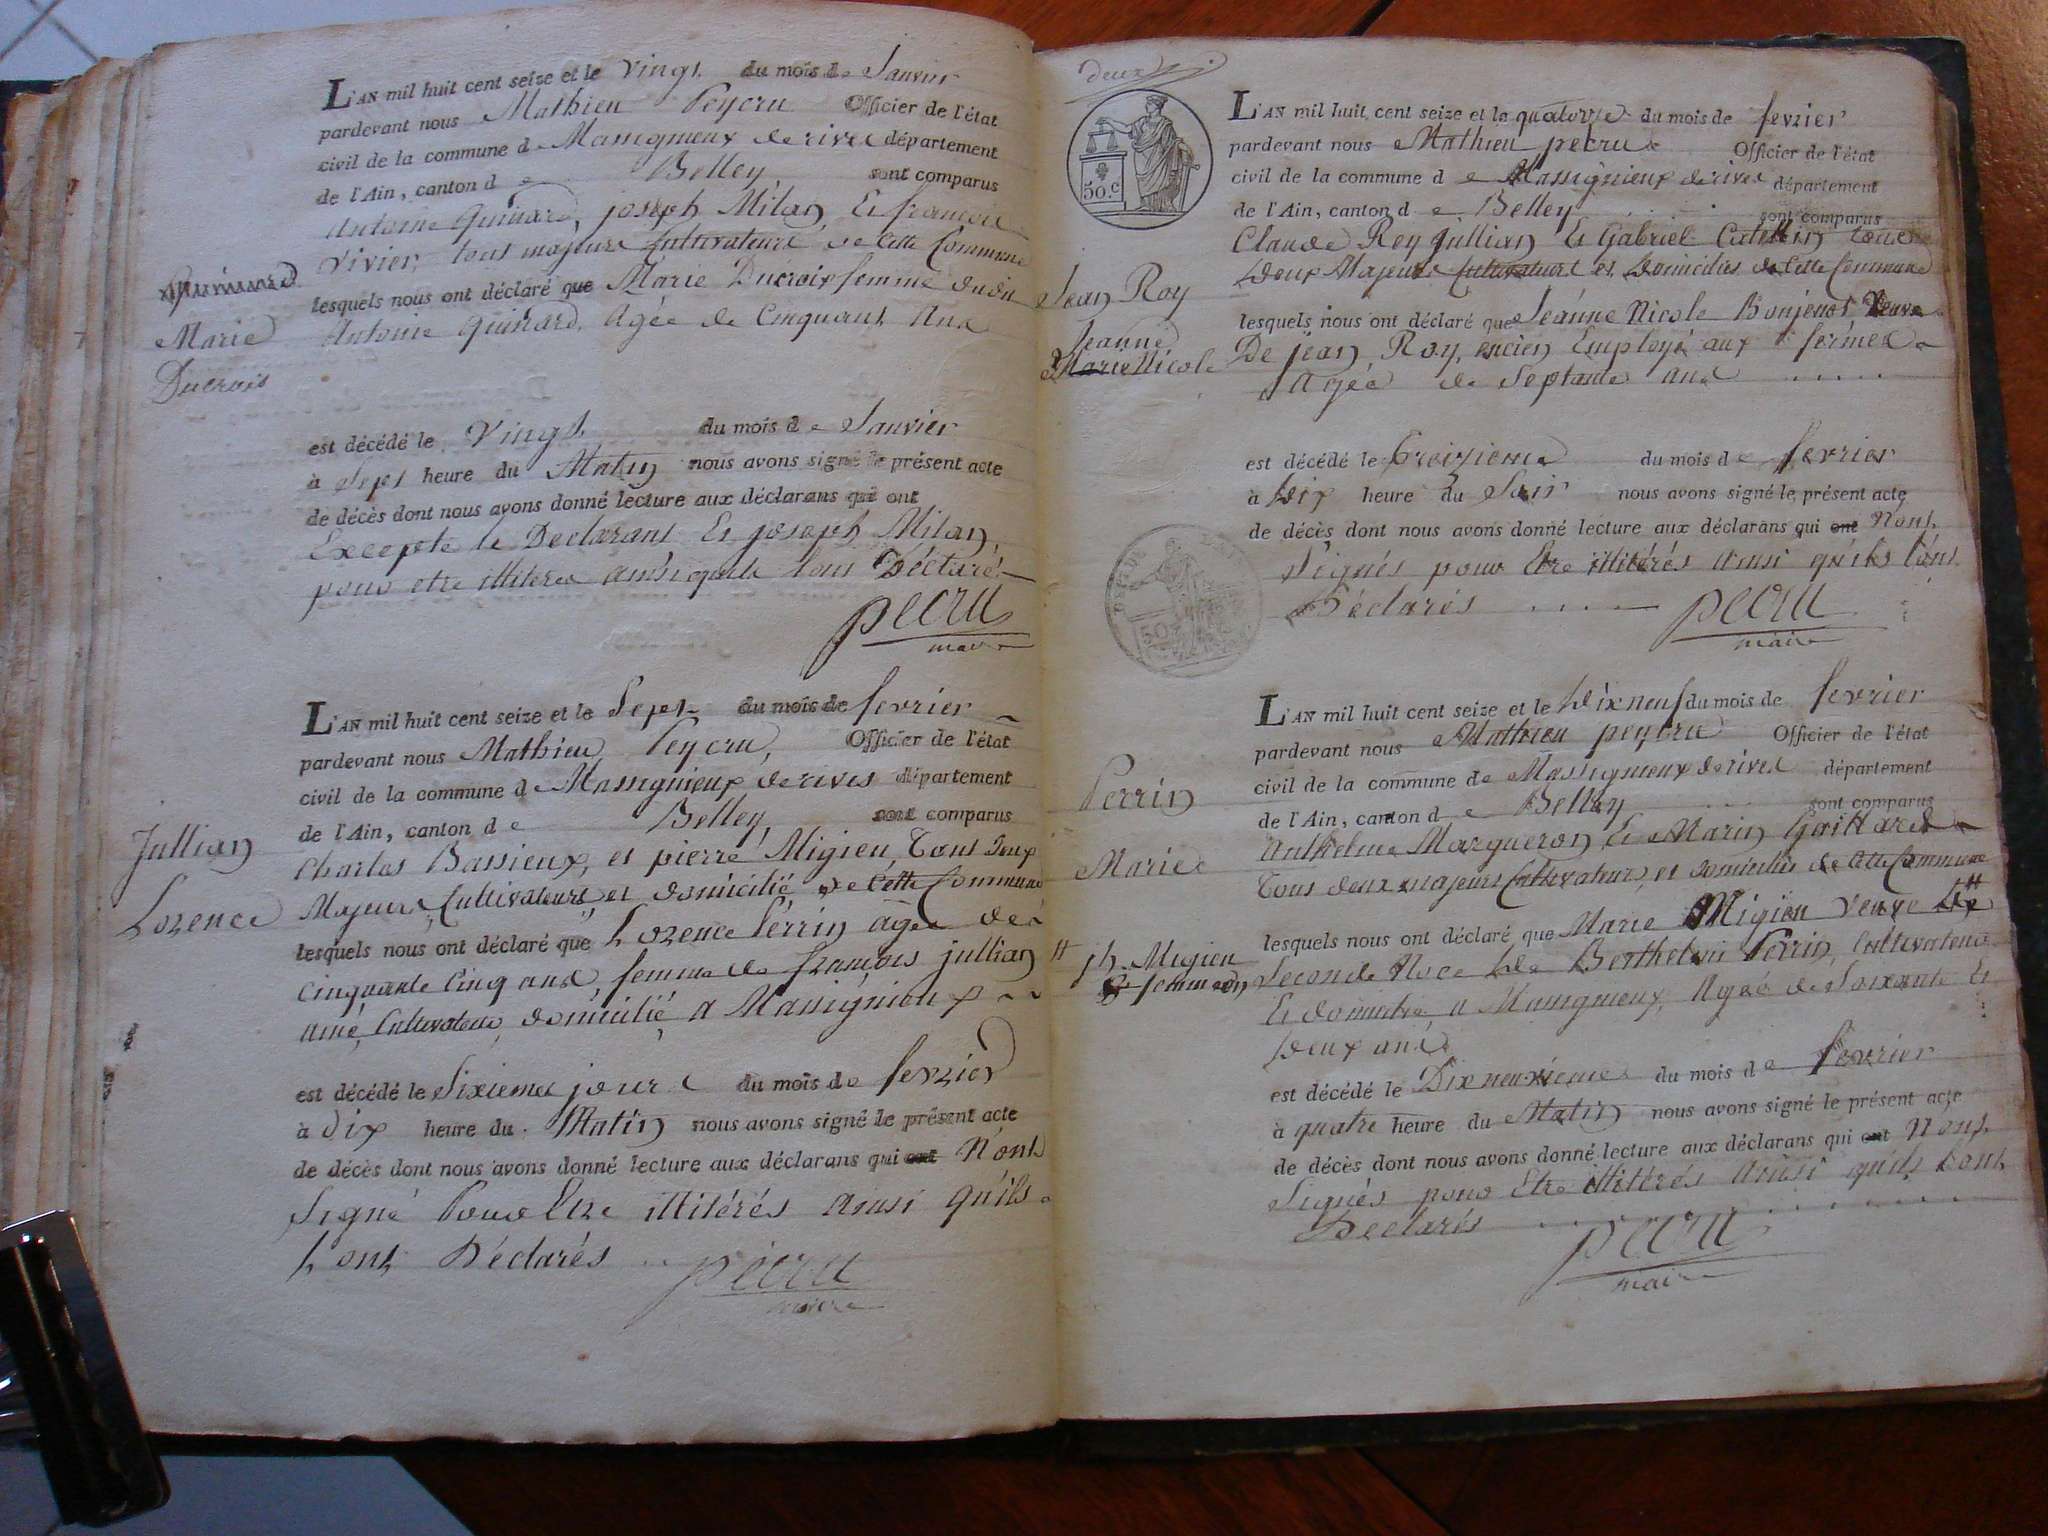 L'AN mil huit cent seize et le vingt du mois de Janvier
pardevant nous Mathieu Peycru Officier de l'état
civil de la commune de Massignieux de rives département
de l'Ain, canton de Belley sont comparus
Antoine Guinard, joseph Milan Et françois
vivier, tous majeurs Cultivateurs de Cette Commune
lesquels nous ont déclaré que Marie Ducroix femme dudit
Antoine Guinard, Agée de Cinquant Ans
Marie
Ducrois
est décédé le Vingt du mois de Janvier
à Sept heure du Matin nous avons signé le présent acte
de décès dont nous avons donné lecture aux déclarans qui ont
Excepté le Declarant Et joseph Milan
pour etre illiteres ainsi quils lont Déclaré
pecru
maire
L'AN mil huit cent seize et le Sept du mois de fevrier
pardevant nous Mathieu Peycru, Officier de l'état
civil de la commune de Massignieux de rives département
de l'Ain, canton de Belley, sont comparus
Charles Bassieux, et pierre Migieu, Tous Deux
Majeurs Cultivateurs et domicilié de Cette Commune
lesquels nous ont déclaré que Lorence Perrin âgée de
Cinquante Cinq ans, femme de françois jullian
ainé, Cultivateur, domicilié a Massignieux
Jullian
Lorence
est décédé le Sixieme jour du mois de fevrier
à dix heure du Matin nous avons signé le présent acte
de décès dont nous avons donné lecture aux déclarans qui ont N'ont
Signé Pour Etre illitérés ainsi qu'ils
Lont Déclarés
pecru
maire
deux
50.c
L'AN mil huit cent seize et le quatorze du mois de fevrier
pardevant nous Mathieu pecru Officier de l'état
civil de la commune de Massignieux de rives département
de l'Ain, canton de Belley sont comparus
Claude Roy Jullian Et Gabriel Catellin tous
Deux Majeurs Cultivateurs et Domiciliés de Cette Commune
lesquels nous ont déclaré que Jeanne Nicole Bonjenot Veuve
De jean Roy, encien Employé aux fermes
Agée de Septante ans
Jean Roy
Jeanne
Marie Nicole
est décédé le treizieme du mois de fevrier
à Dix heure du Soir nous avons signé le présent acte
de décès dont nous avons donné lecture aux déclarans qui ont N'ont
Signés pour Etre illitérés ainsi qu'ils l'ont
Déclarés
pecru
maire
L'AN mil huit cent seize et le Dixneuf du mois de fevrier
pardevant nous Mathieu peycru Officier de l'état
civil de la commune de Massignieux de rives département
de l'Ain, canton de Belley sont comparus
Anthelme Margueron Et Marin Gaillard
Tous deux majeurs Cultivateurs et domiciliés de Cette Commune
lesquels nous ont déclaré que Marie Migieu veuve
Seconde Noce de Berthelmi Perrin, Cultivateur
Et domicilié a Massignieux, Agée de Soixante Et
Deux ans
Perrin
Marie
jh. Migieu
est décédé le Dixneuvieme du mois de fevrier
à quatre heure du Matin nous avons signé le présent acte
de décès dont nous avons donné lecture aux déclarans qui ont N'ont
Signés pour Etre illitérés ainsi qu'ils Lont
Déclarés
pecru
maire